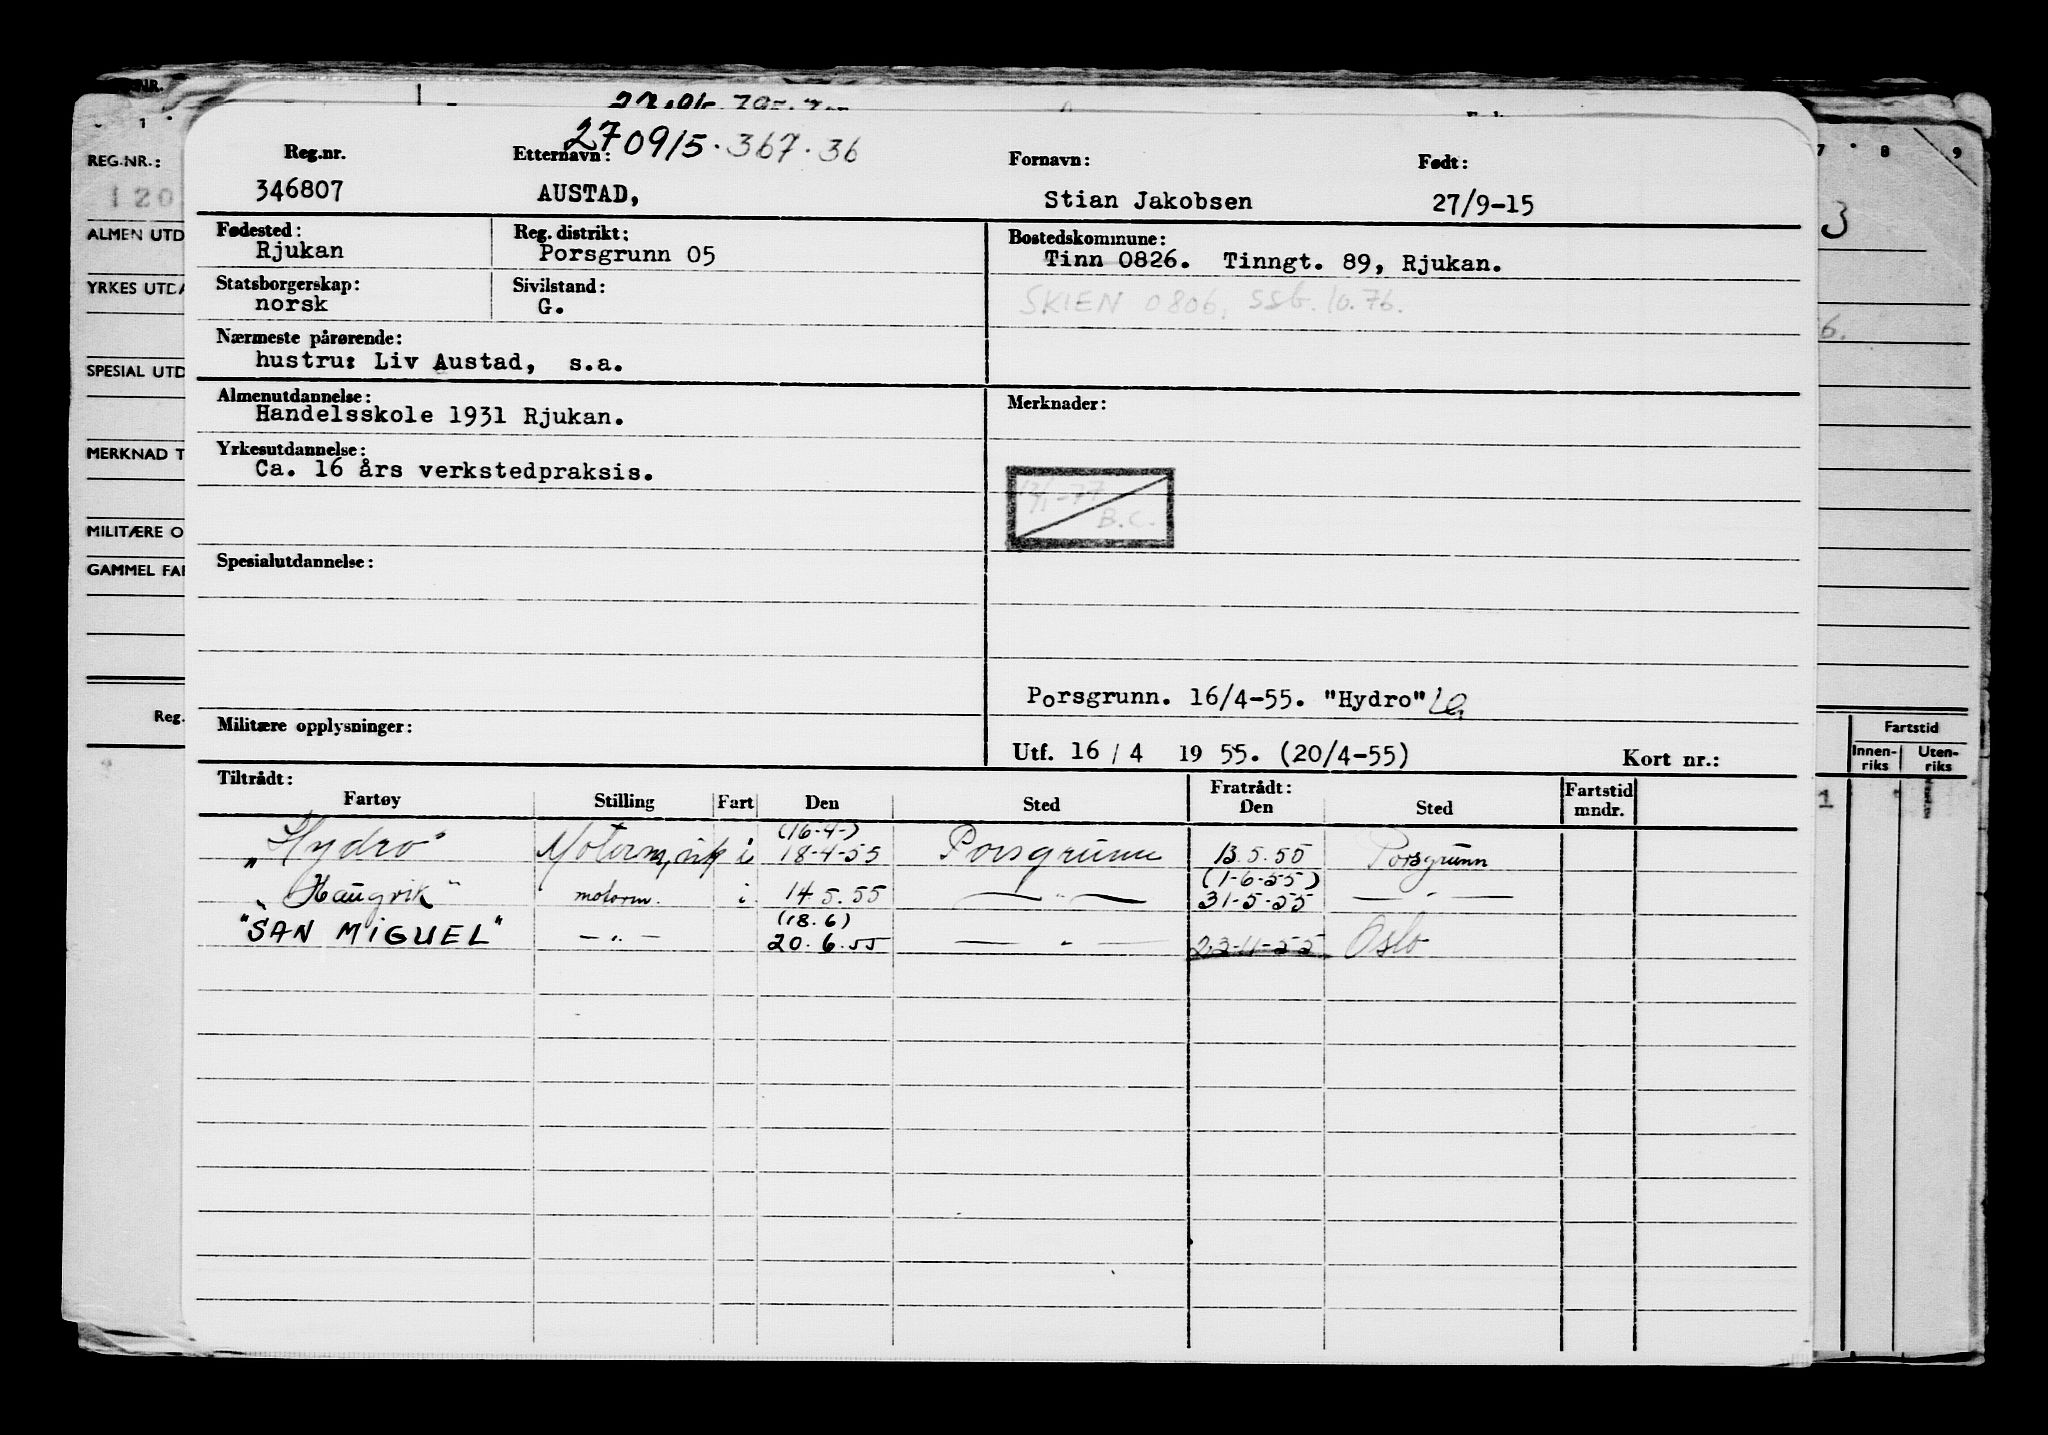 270915.367.36
Reg.nr. Etternavn: Fornavn: Født:
346807 AUSTAD, Stian Jakobsen 27/9-15
Fødested: Reg. distrikt: Bostedskommune:
Rjukan Porsgrunn 05 Tinn 0826. Tinngt. 89, Rjukan.
Statsborgerskap: Sivilstand:
norsk G. SKIEN 0806, SSB. 10.76.
Nærmeste pårørende:
hustru: Liv Austad, s.a.
Almenutdannelse: Merknader:
Handelsskole 1931 Rjukan.
Yrkesutdannelse:
Ca. 16 års verkstedpraksis.
-77
B.C.
Spesialutdannelse:
Porsgrunn. 16/4-55. "Hydro"
Militære opplysninger:
Utf. 16 / 4 19 55. (20/4-55) Kort nr.:
Tiltrådt: Fratrådt:
Fartøy Stilling Fart Den Sted Den Sted Fartstid mndr.
(16-4-)
"Hydro" i 18-4-55 Porsgrunn 13.5.55 Porsgrunn
(1-6-55)
"Haugvik" motorm. i 14.5.55 —"— 31-5-55 —"—
(18.6)
"SAN MIGUEL" —"— 20.6.55 —"— 23-11-55 Oslo
REG.NR.:
120
ALMEN UTD
YRKES UTDA
SPESIAL UTD
MERKNAD T
MILITÆRE O
GAMMEL FAR
Reg.
7 8 9
3
6.
Fartstid
Innen-riks Uten-riks
1